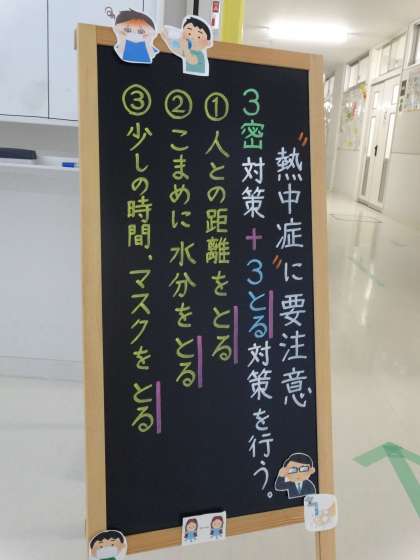 〝熱中症〟に要注意
3密対策+3とる対策を行う。
①人との距離をとる
②こまめに水分をとる
③少しの時間、マスクをとる